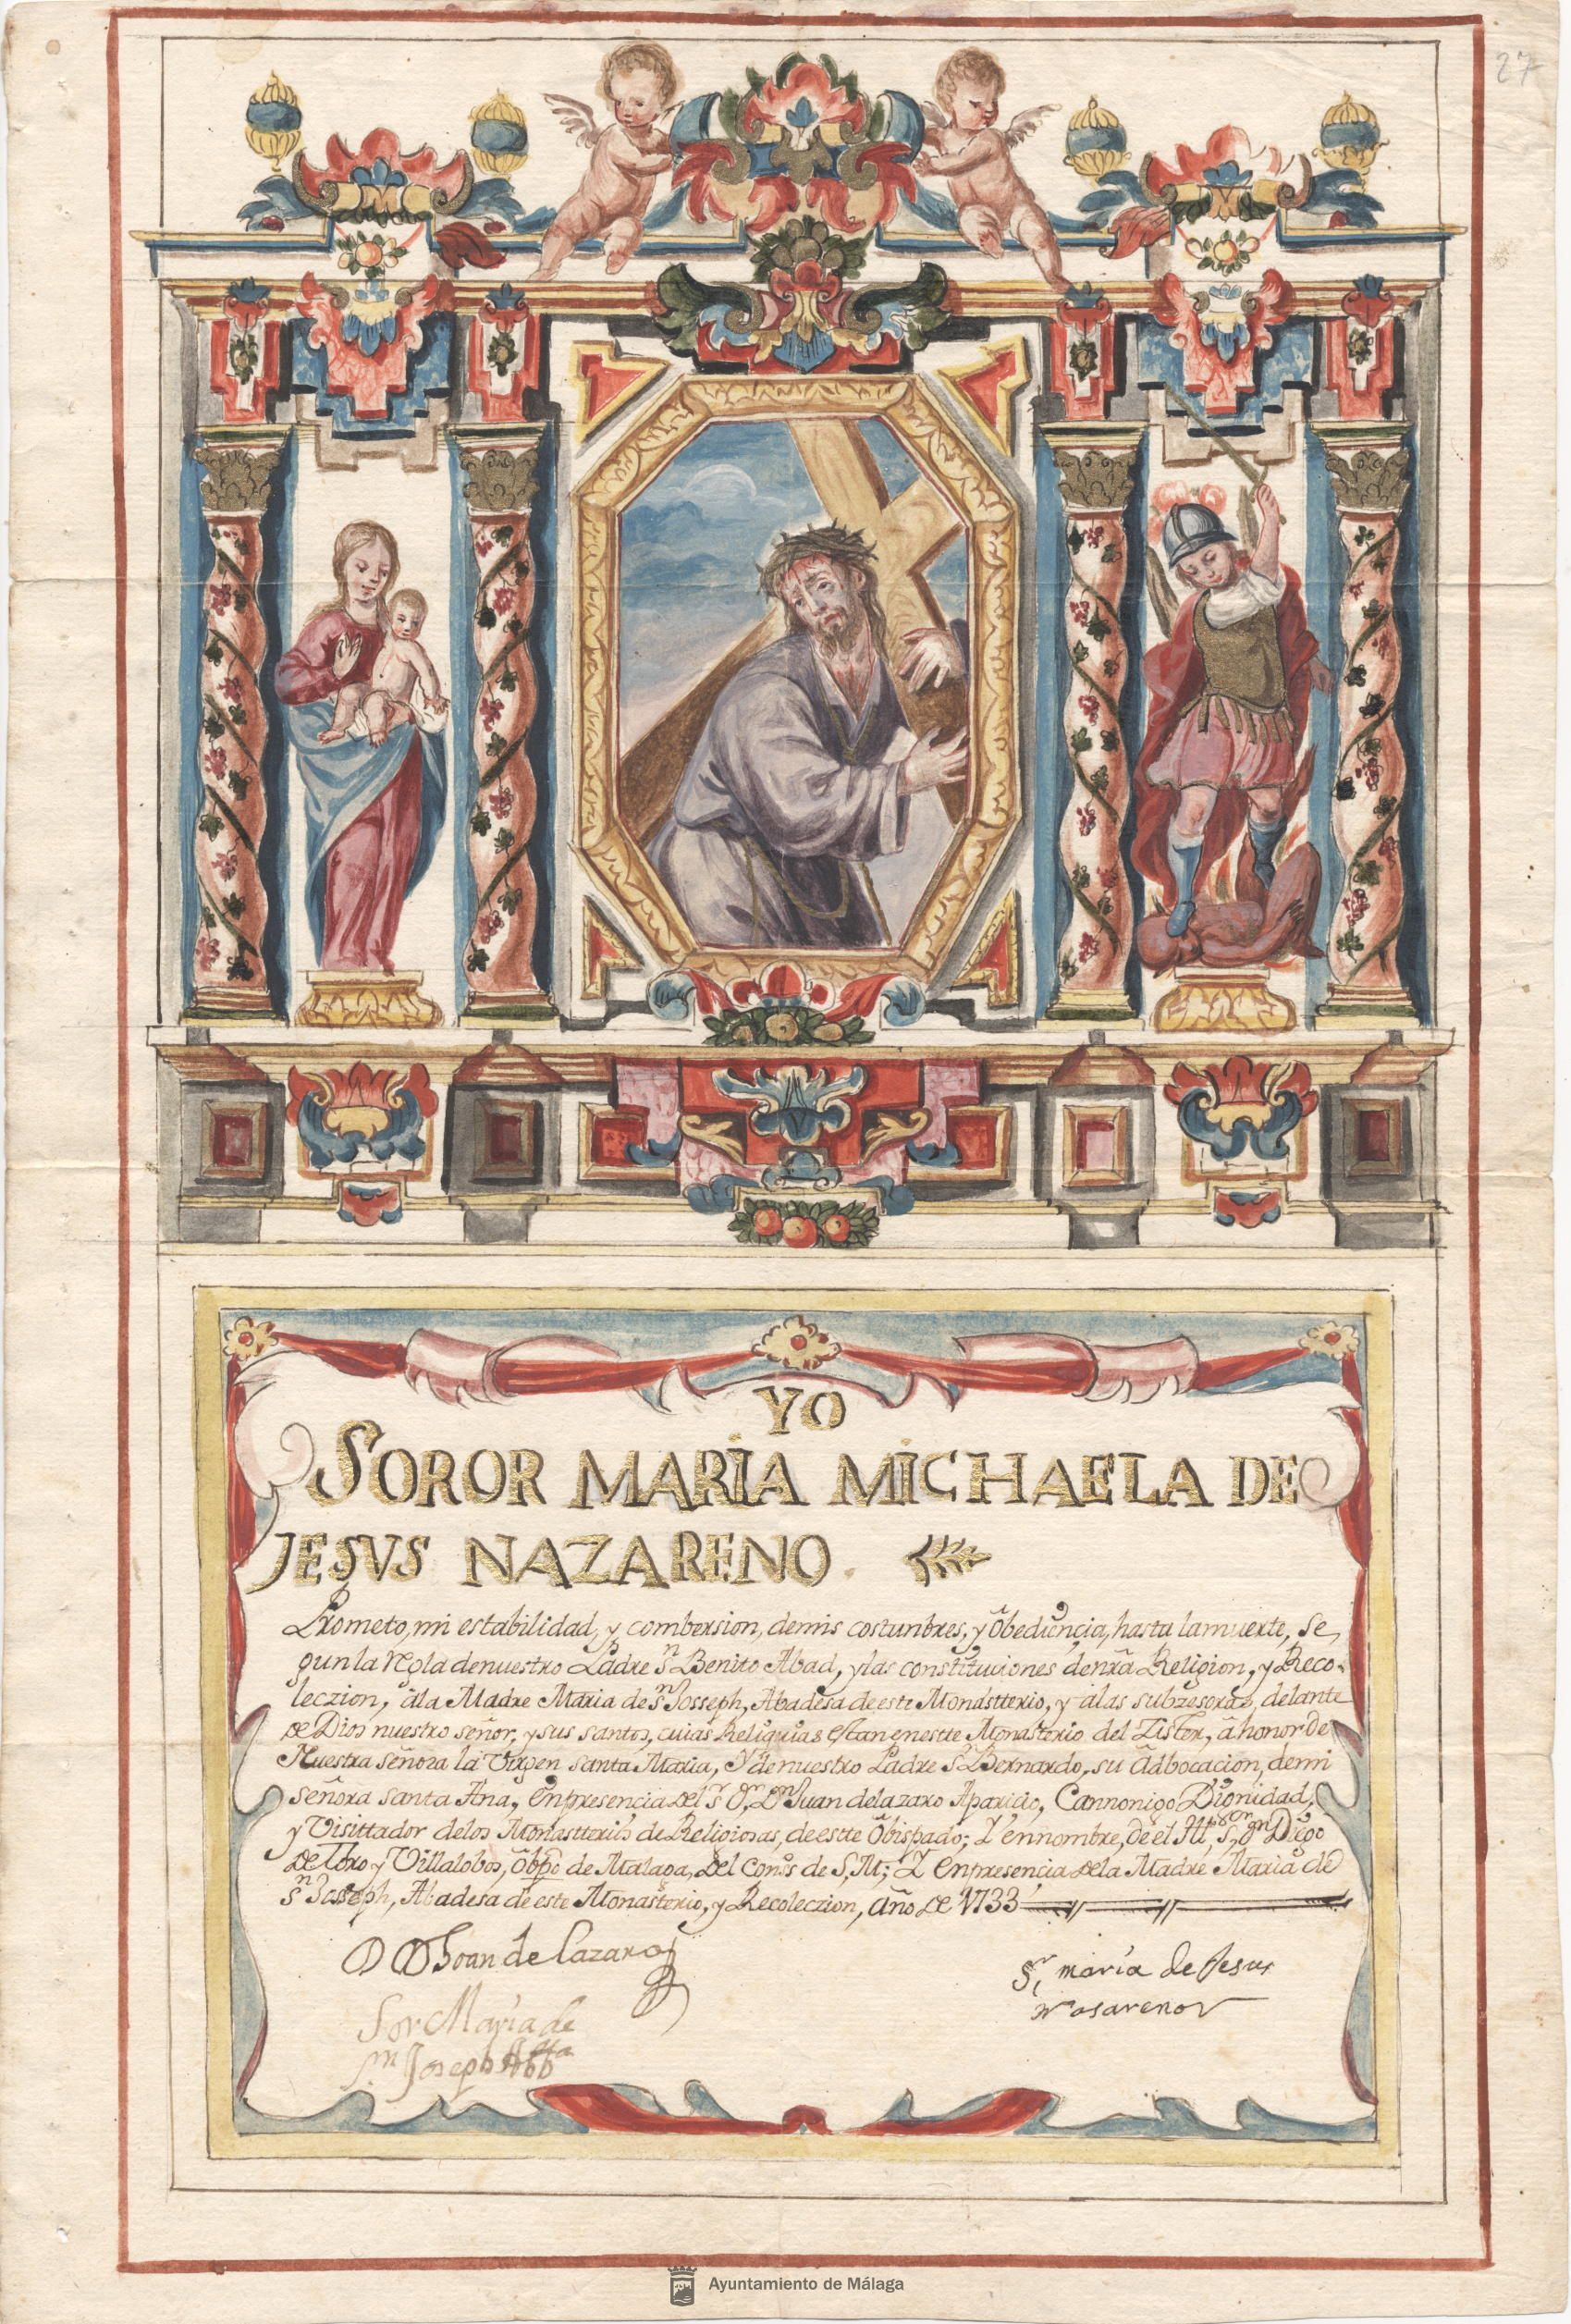 27
YO
SOROR MARIA MICHAELA DE
JESVS NAZARENO.
Prometo, mi estabilidad, y combersion, demis costunbres, y õbediẽncia, hasta lamuerte, se,
gun la regla denuestro Padre Sn Benito Abad, ylas constituciones denrã Religion, y Reco-
leczion, âla Madre Maria de Sn Josseph, Abadesa deeste Monastterio, y alas subzesoras, delante
de Dios nuestro señor, ysus santos, cuias Reliquias estan enestte Monasterio del Zister, âhonor de
Nuestra señora la Virgen santa Maria, Y denuestro Padre Sn Bernardo, su Adbocacion, demi
señora santa Ana, Enpresencia del Sr Dr Dn Juan delazaro Aparicio, Cannonigo Dignidad,
y Visittador delos Monastterios de Religiosas, deestte Obispado; Y ennombre, de el Sor Dn Diego
de toro y Villalobos, Obpo de Malaga, del Cons de S, M; Y Enpresencia dela Madre Maria de
Sn Josseph, Abadesa de este Monasterio, y Recoleczion, año de 1733
D D Joan de Lazaro
Sr maria de Jesus
nasareno
Sor María de
Sn Joseph Abbta
Ayuntamiento de Málaga